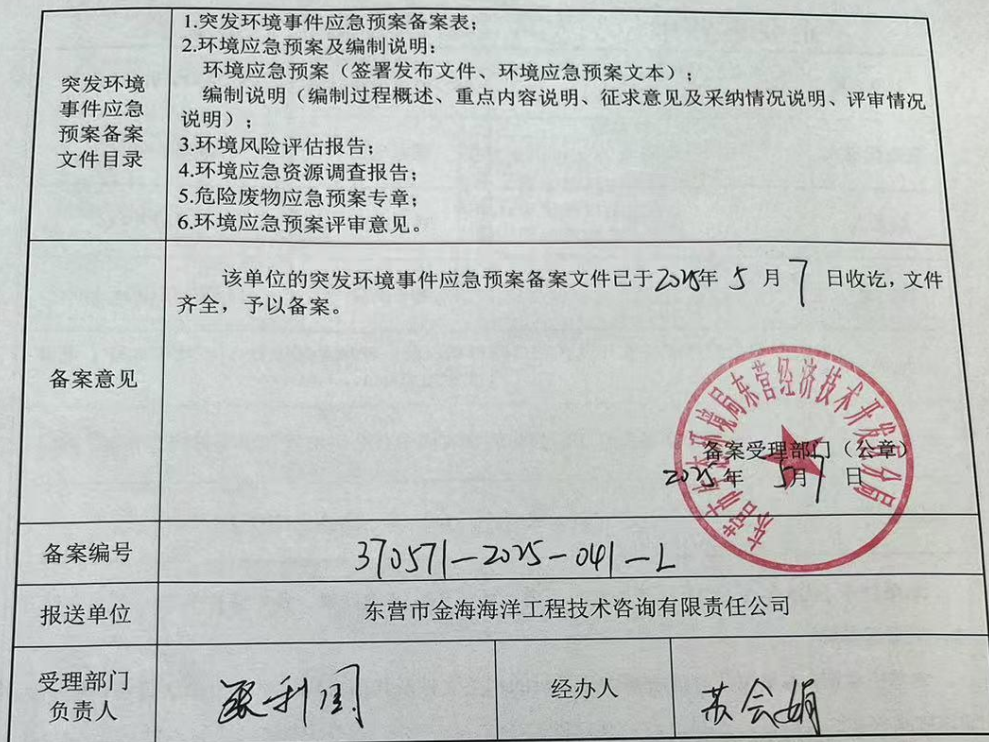 突发环境
事件应急
预案备案
文件目录
1.突发环境事件应急预案备案表；
2.环境应急预案及编制说明：
环境应急预案（签署发布文件、环境应急预案文本）；
编制说明（编制过程概述、重点内容说明、征求意见及采纳情况说明、评审情况
说明）；
3.环境风险评估报告；
4.环境应急资源调查报告；
5.危险废物应急预案专章；
6.环境应急预案评审意见。
备案意见
该单位的突发环境事件应急预案备案文件已于2025年 5 月 7 日收讫，文件
齐全，予以备案。
东营市生态环境局东营经济技术开发区分局
备案受理部门（公章）
2025年 5月7日
备案编号
370571-2025-041-L
报送单位
东营市金海海洋工程技术咨询有限责任公司
受理部门
负责人
利国
经办人
苏会娟